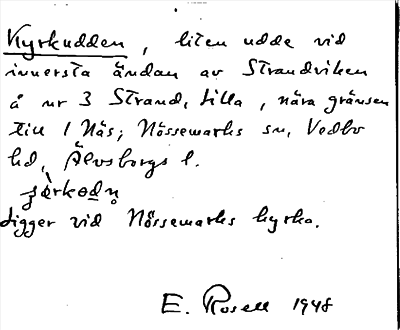 Kyrkudden, liten udde vid
innersta ändan av Strandviken
å nr 3 Strand, Lilla, nära gränsen
till 1 Näs; Nössemarks sn, Vedbo
hd, Älvsborgs l.
Ligger vid Nössemarks kyrka.
E. Rosell 1948